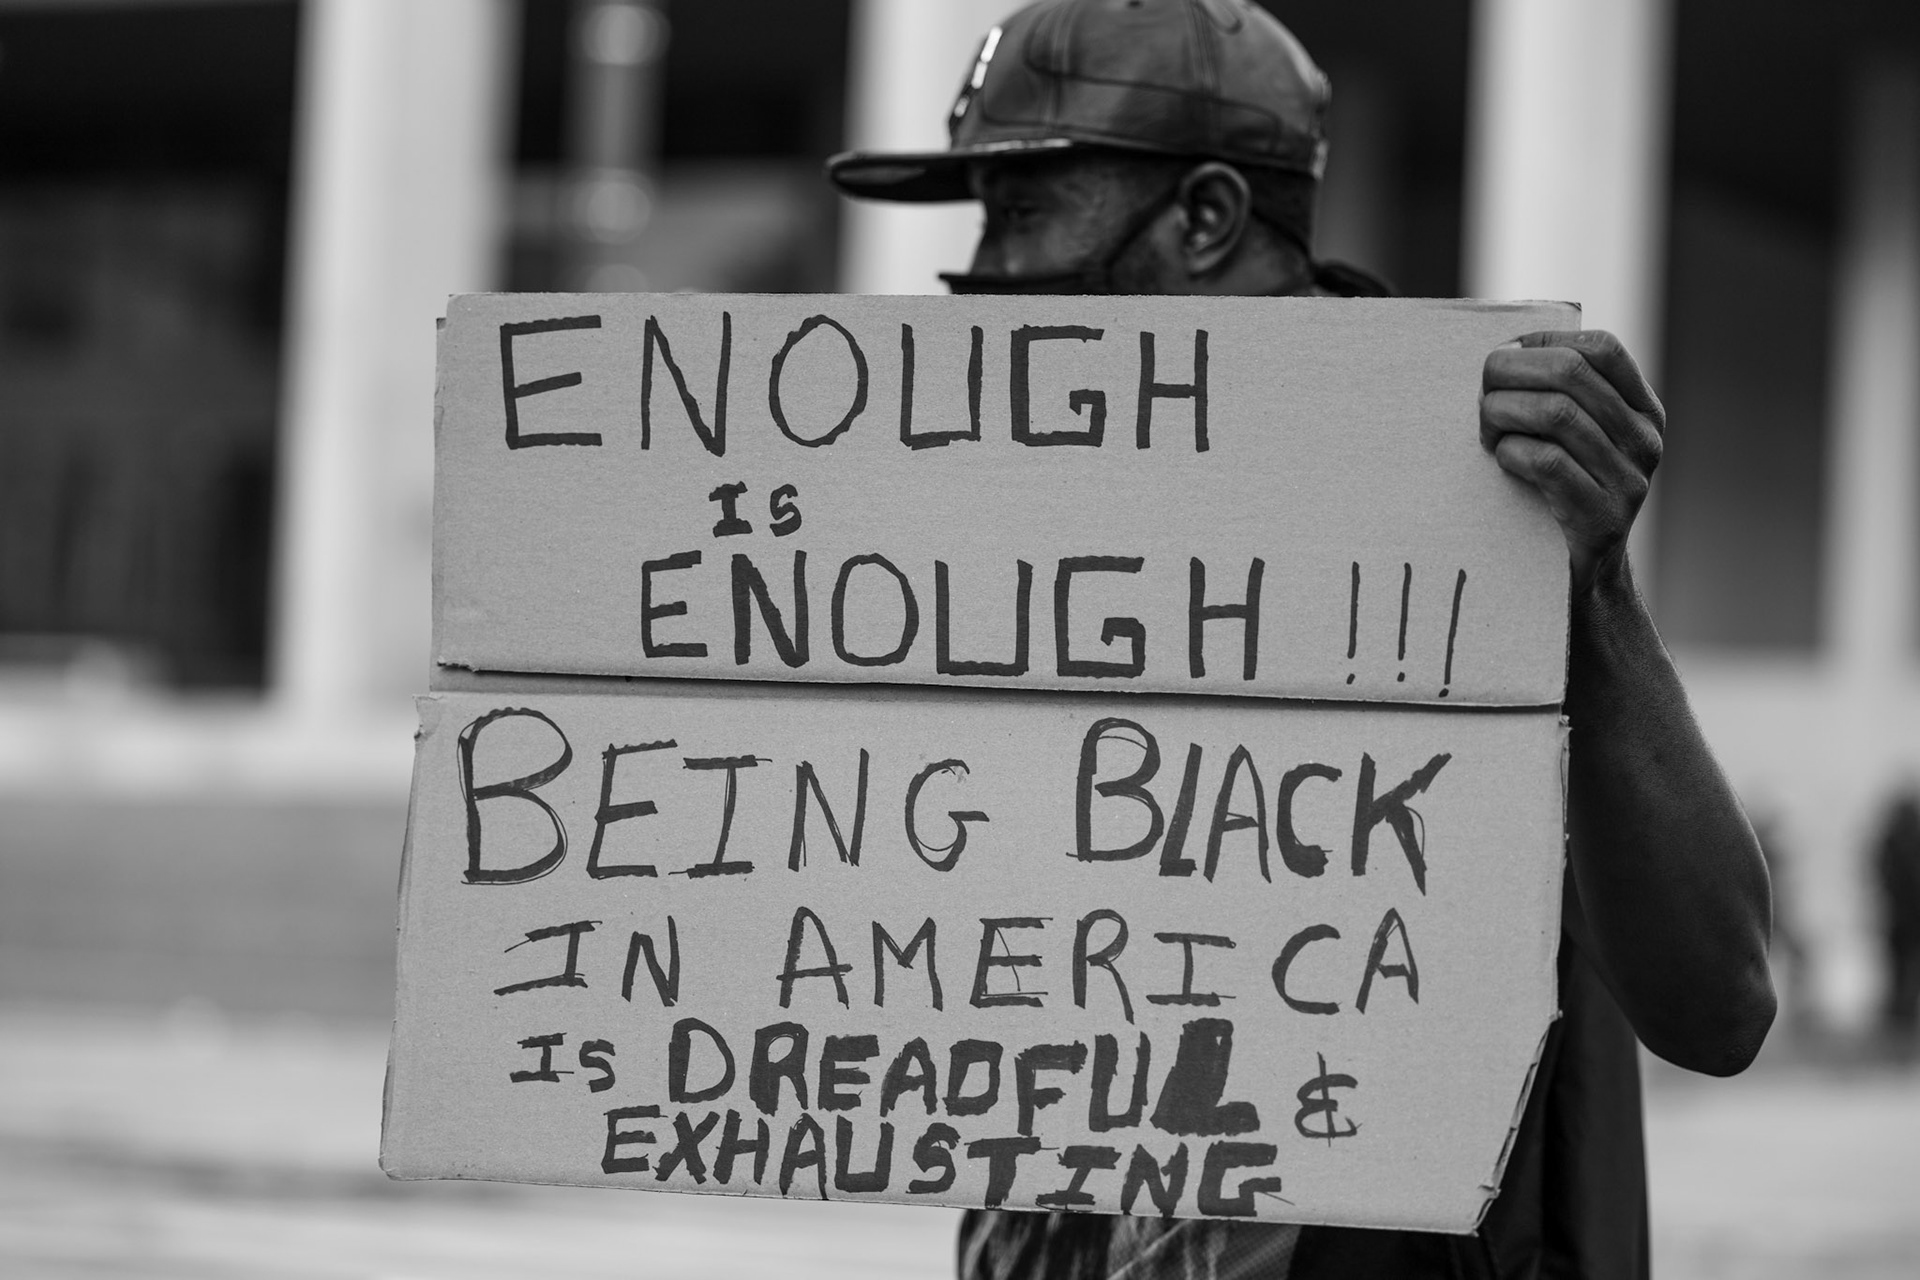 ENOUGH
IS
ENOUGH !!!
BEING BLACK
IN AMERICA
IS DREADFUL &
EXHAUSTING